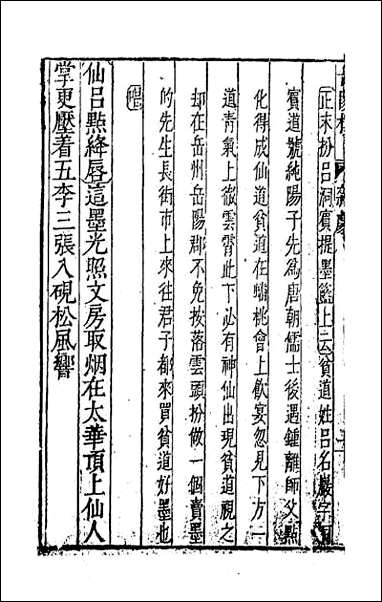 正末扮呂洞賓提墨籃上云貧道姓呂名巖字洞
賓道號純陽子先爲唐朝儒士後遇鍾離師父點
化得成仙道貧道在蟠桃會上飲宴忽見下方一
道青氣上徹雲霄此下必有神仙出現貧道視之
却在岳州岳陽郡不免按落雲頭扮做一個賣墨
的先生長街市上來往君子都來買貧道好墨也
唱
仙呂點絳唇這墨光照文房取烟在太華頂上仙人
掌更壓着五李三張入硯松風響